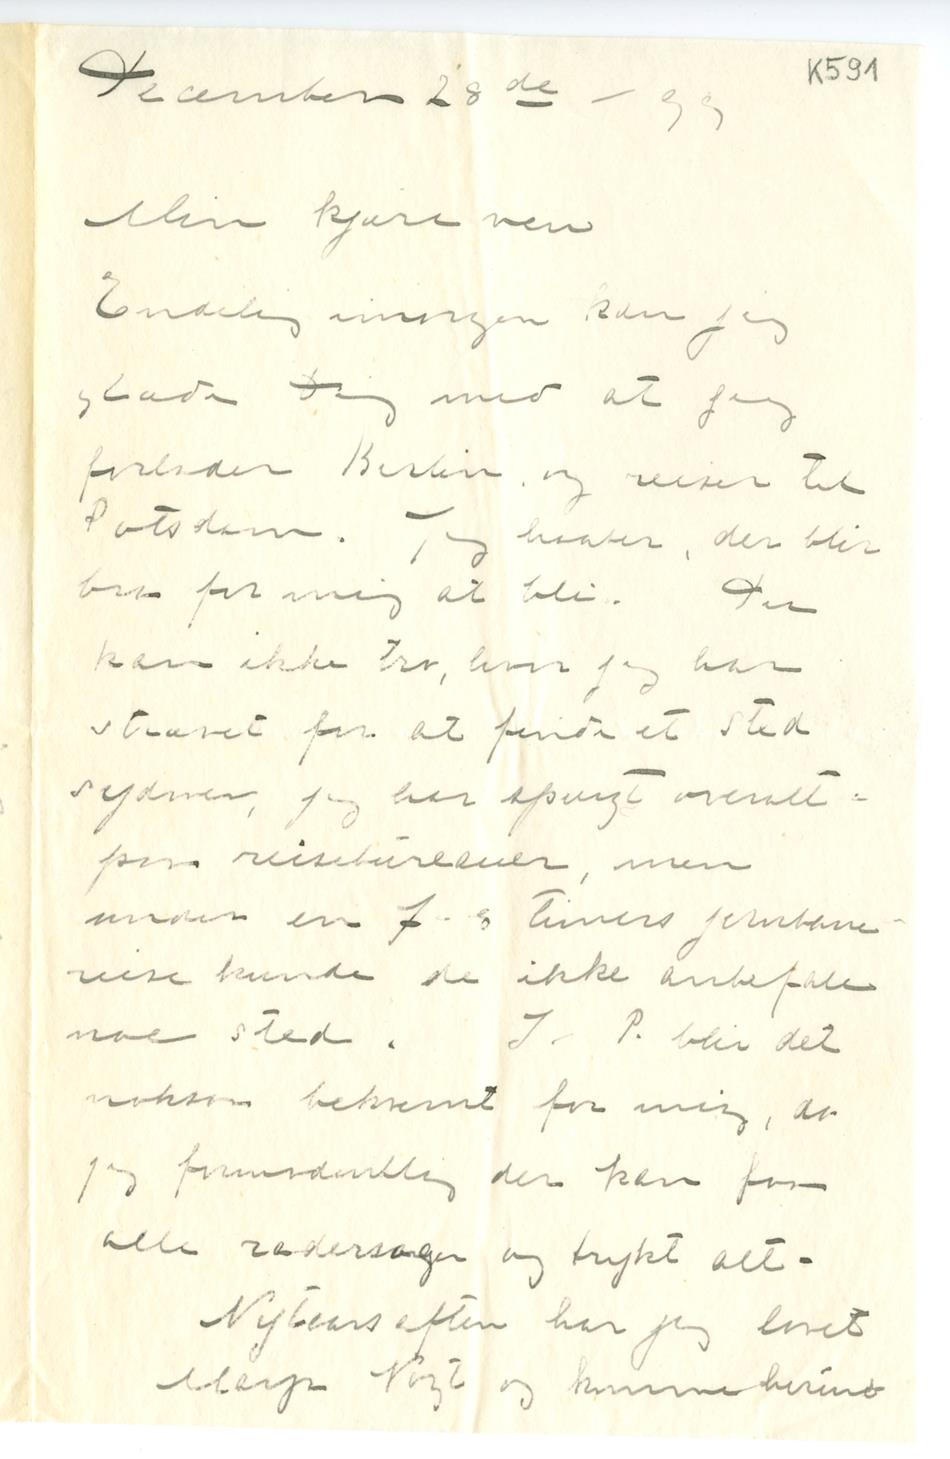 K591
December 28de – 99
Min kjære ven
Endelig imorgen kan jeg
glæde Dig med at jeg
forlader Berlin og reiser til
Potsdam. Jeg haaber, der blir
bra for mig at bli. Du
kan ikke tro, hvor jeg har
strævet for at finde et sted
sydover, jeg har spurgt overalt –
paa reisebureauer, men
under en 7–8 timers jernbane-
reise kunde de ikke anbefale
noe sted. I P. blir det
noksaa bekvemt for mig, da
jeg formodentlig der kan faa
alle radersager og trykt alt –
Nytaarsaften har jeg lovet
Vogt og komme herind